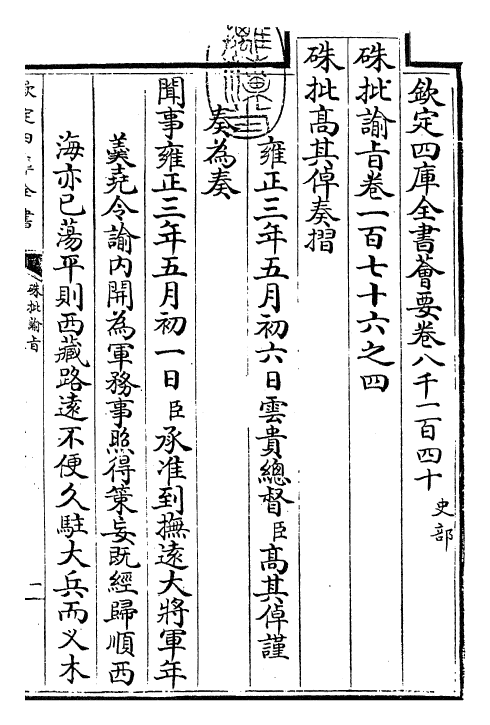 欽定四庫全書薈要卷八千一百四十 史部
硃批諭旨卷一百七十六之四
硃批髙其倬奏摺
雍正三年五月初六日雲貴總督臣髙其倬謹
奏為奏
聞事雍正三年五月初一日臣承准到撫逺大將軍年
羮堯令諭内開為軍務事照得策妄既經歸順西
海亦已蕩平則西藏路逺不便久駐大兵而乂木
硃批諭旨
二